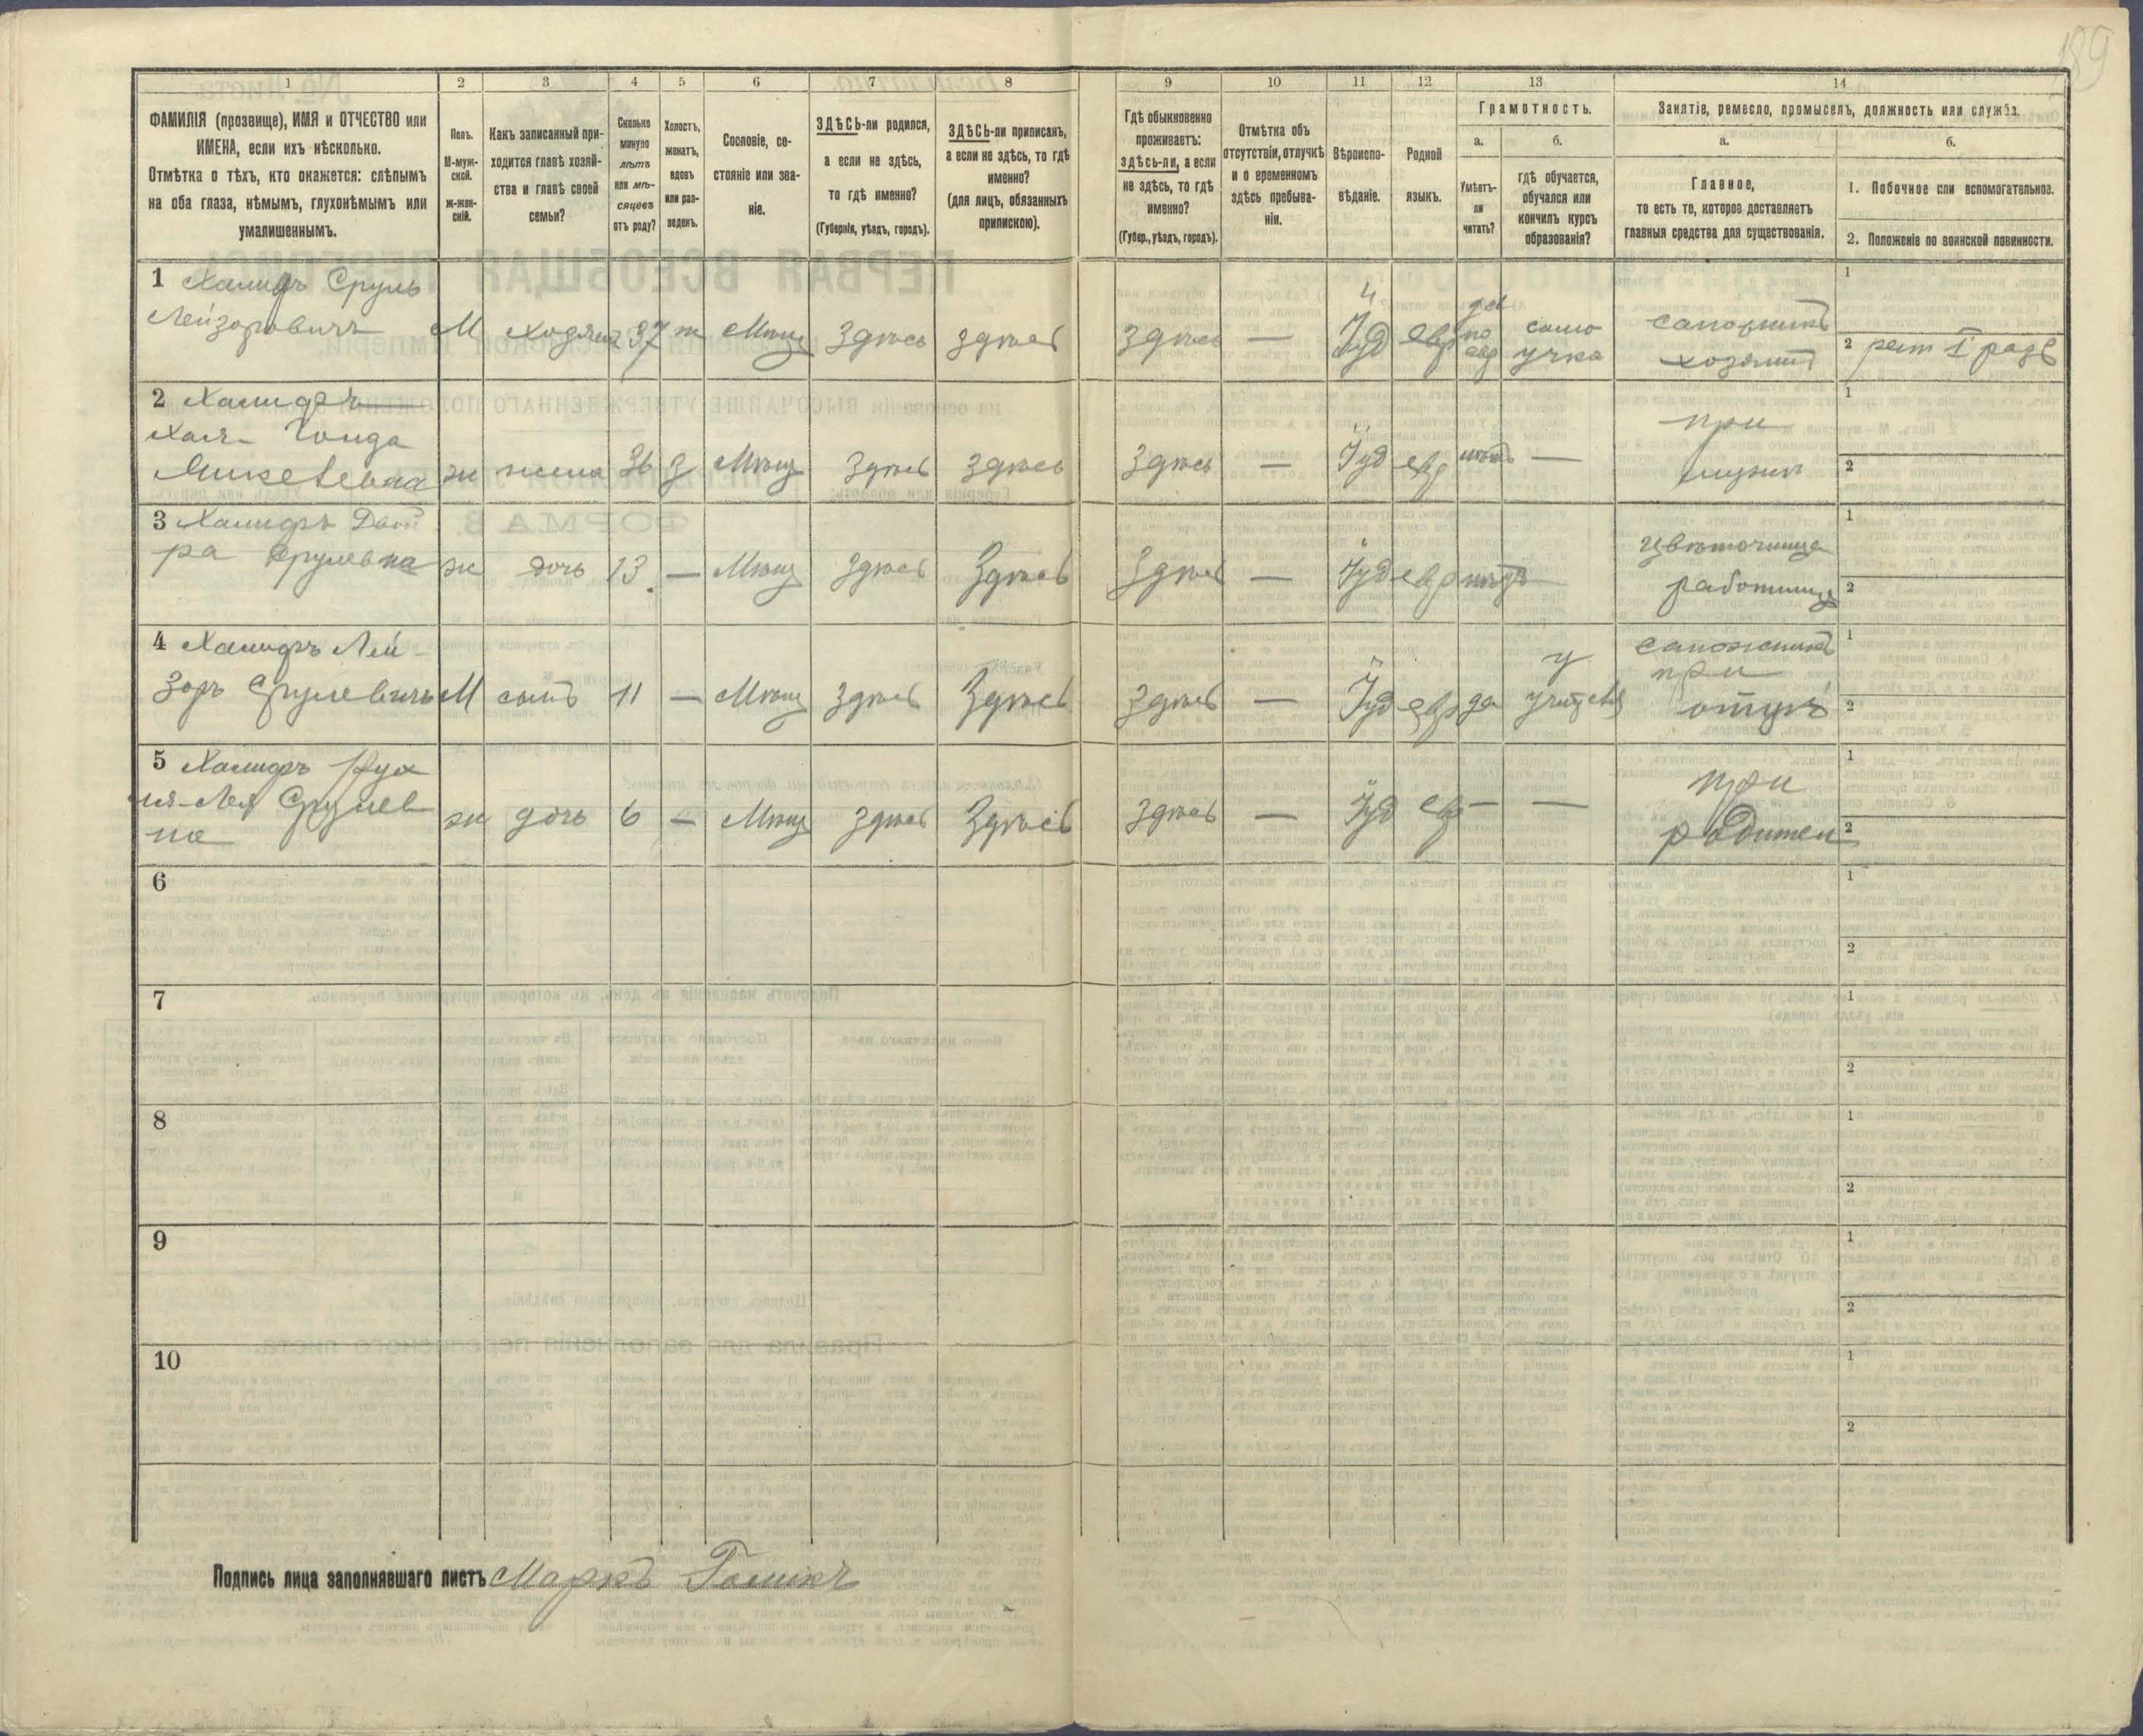 189
1
2
3
4
5
6
7
8
9
10
11
12
13
14
ФАМИЛІЯ (прозвище), ИМЯ и ОТЧЕСТВО или
ИМЕНА, если ихъ нѣсколько.
Отмѣтка о тѣхъ, кто окажется: слѣпымъ
на оба глаза, нѣмымъ, глухонѣмымъ или
умалишеннымъ.
Полъ.
М-муж-
ской.
Ж-жен-
скій.
Какъ записанный при-
ходится главѣ хозяй-
ства и главѣ своей
семьи?
Сколько
минуло
лѣтъ
или мѣ-
сяцевъ
отъ роду?
Холостъ,
женатъ,
вдовъ
или раз-
веденъ.
Сословіе, со-
стояніе или зва-
ніе.
ЗДѢСЬ-ли родился,
а если не здѣсь,
то гдѣ именно?
(Губернія, уѣздъ, городъ).
ЗДѢСЬ-ли приписанъ,
а если не здѣсь, то гдѣ
именно?
(для лицъ, обязанныхъ
припискою).
Гдѣ обыкновенно
проживаетъ:
здѣсь-ли, а если
не здѣсь, то гдѣ
именно?
(Губер., уѣздъ, городъ).
Отмѣтка объ
отсутствіи, отлучкѣ
и о временномъ
здѣсь пребыва-
ніи.
Вѣроиспо-
вѣданіе.
Родной
языкъ.
Грамотность.
а.
Умѣетъ-
ли
читать?
б.
гдѣ обучается,
обучался или
кончилъ курсъ
образованія?
Занятіе, ремесло, промыселъ, должность или служба.
а.
Главное,
то есть то, которое доставляетъ
главныя средства для существованія.
б.
1. Побочное или вспомогательное.
2. Положеніе по воинской повинности.
1 Халифъ Сруль
Лейзоровичъ М хозяинъ 37 ж Мѣщ здѣсь здѣсь здѣсь — Іуд евр да по евр само учка сапожникъ хозяинъ 1
2 рат I разр
2 Халифъ
Хая- Гольда
ж жена 36 з Мѣщ здѣсь здѣсь здѣсь — Іуд евр нѣтъ — при мужѣ 1
2
3 Халифъ Двой
ра Срулевна ж дочь 13 — Мѣщ здѣсь здѣсь здѣсь — Іуд евр нѣтъ — цвѣточница работница 1
2
4 Халифъ Лей-
зоръ Срулевичъ М сынъ 11 — Мѣщ здѣсь здѣсь здѣсь — Іуд евр да у сапожникъ при отцѣ 1
2
5 Халифъ Рух
ля-Лея Срулев
на ж дочь 6 — Мѣщ здѣсь здѣсь здѣсь — Іуд евр — — при родител 1
2
6 1
2
7 1
2
8 1
2
9 1
2
10 1
2
Подпись лица заполнявшаго листъ Маркъ